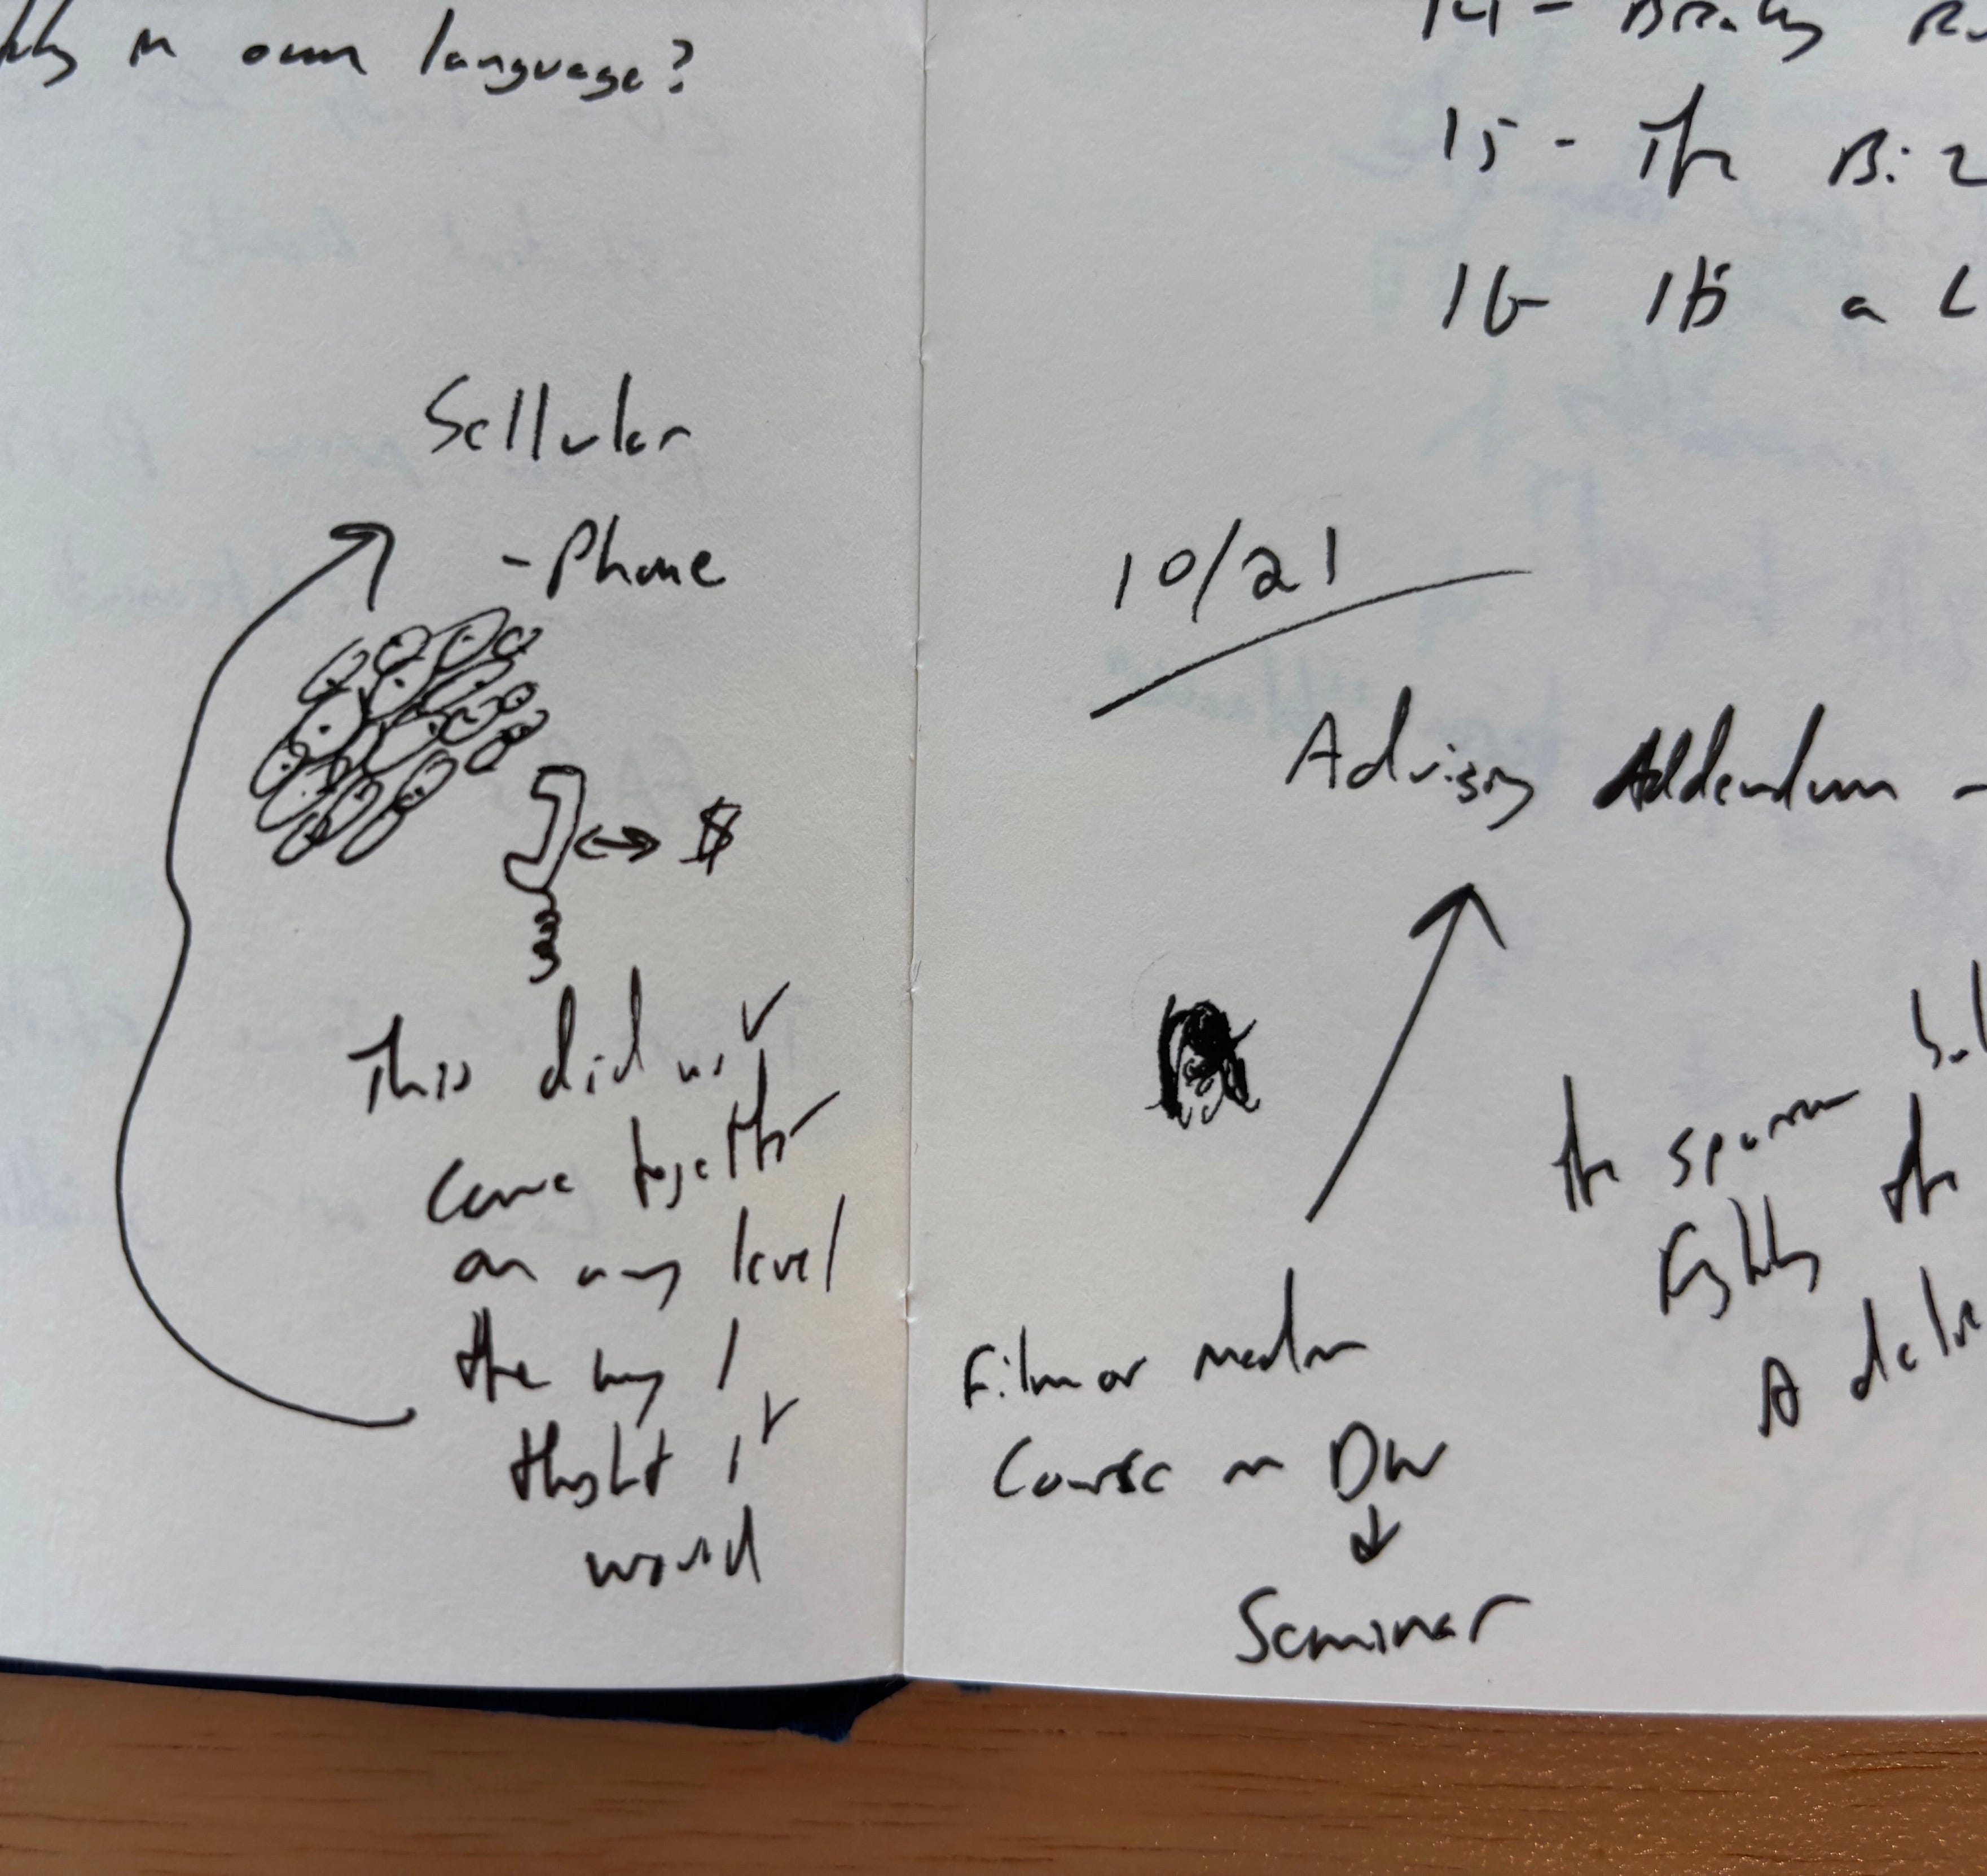 in own language?
Sellular
- Phone
$
This did not
come together
on any level
the way I
thought it
would
15 - The Biz
16 - a
10/21
Advisory Addendum -
the sperm
A
Film or media
Course on DW
Seminar